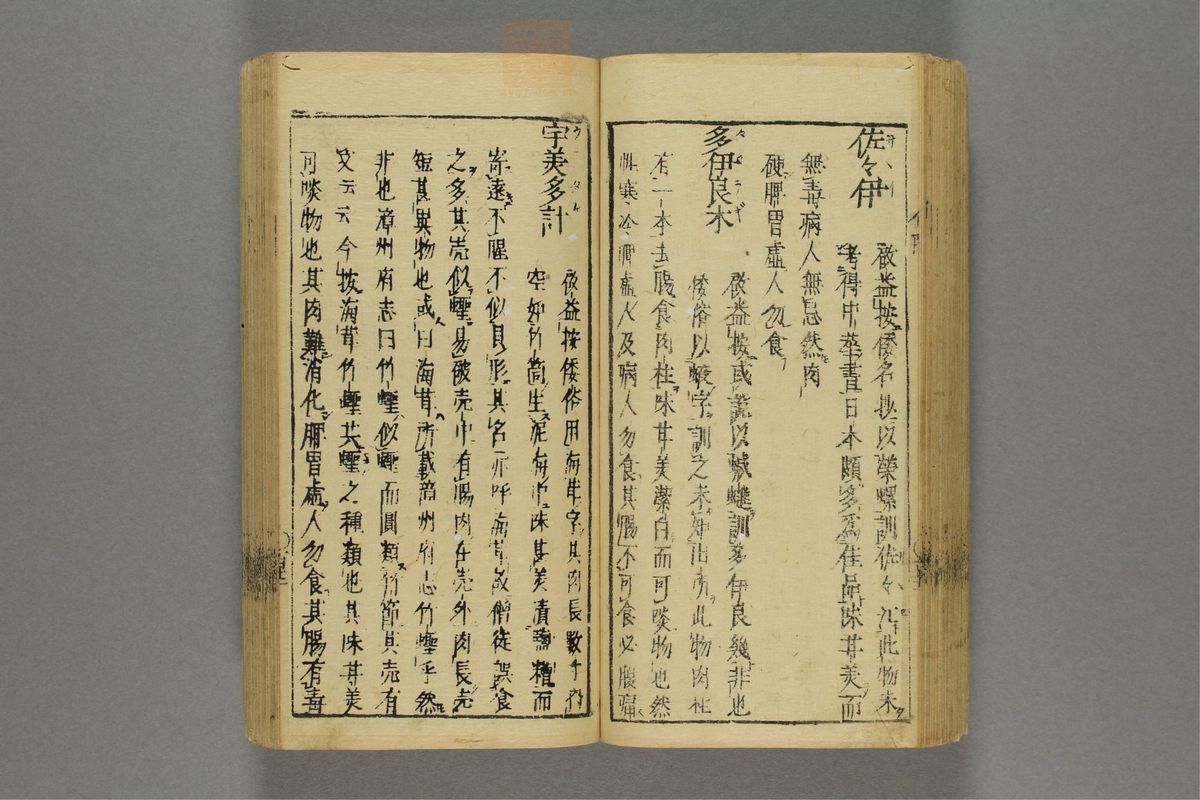 佐々伊
啟益按倭名抄以榮螺訓佐々伊此物未
考得中華書日本頗多為佳品味甘美而
無毒病人無忌然肉
硬脾胃虛人勿食
多伊良木
啟益按或說以蚶訓多伊良幾非也
倭俗以蛟字訓之未知出旁此物肉柱
有一本去腸食肉柱味甘美潔白而可啖物也然
性寒冷脾虛人及病人勿食其腸不可食必腹痛
宇美多計
啟益按倭俗用海茸字其肉長數寸許
空如竹筒生泥海中味甚美漬糟而
寄遠不腥不似貝形其名亦呼海茸故僧徒誤食
之多其壳似蟶易破壳中有腸肉在壳外肉長壳
短甚異物也或曰海茸所載韶州府志竹蟶乎然
非也漳州府志曰竹蟶似蟶而圓類竹節其壳有
文云云今按海茸竹蟶共蟶之種類也其味甘美
可啖物也其肉難消化脾胃虛人勿食其腸有毒